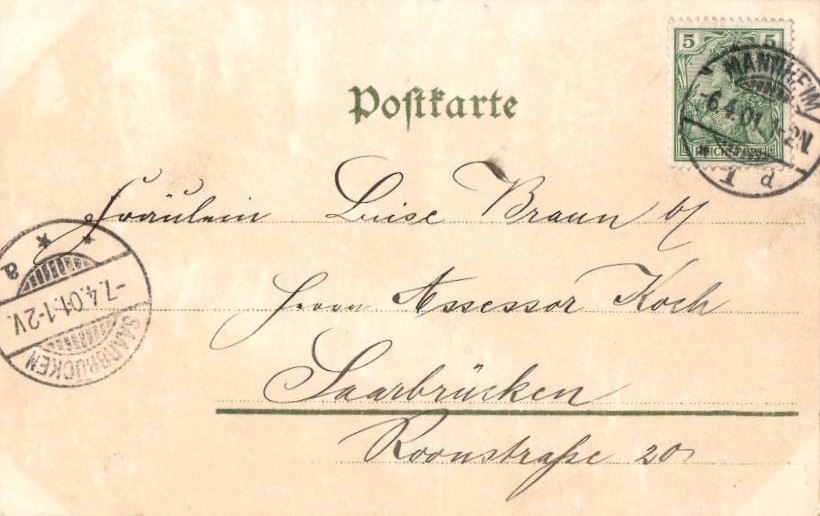 5 5
REICHSPOST
MANNHEIM
-6.4.01. 1-2N.
P T
Postkarte
Fräulein Luise Braun b/
Herrn Assessor Koch
Saarbrücken
Roonstraße 20.
* *
a
-7.4.01.1-2V.
SAARBRÜCKEN